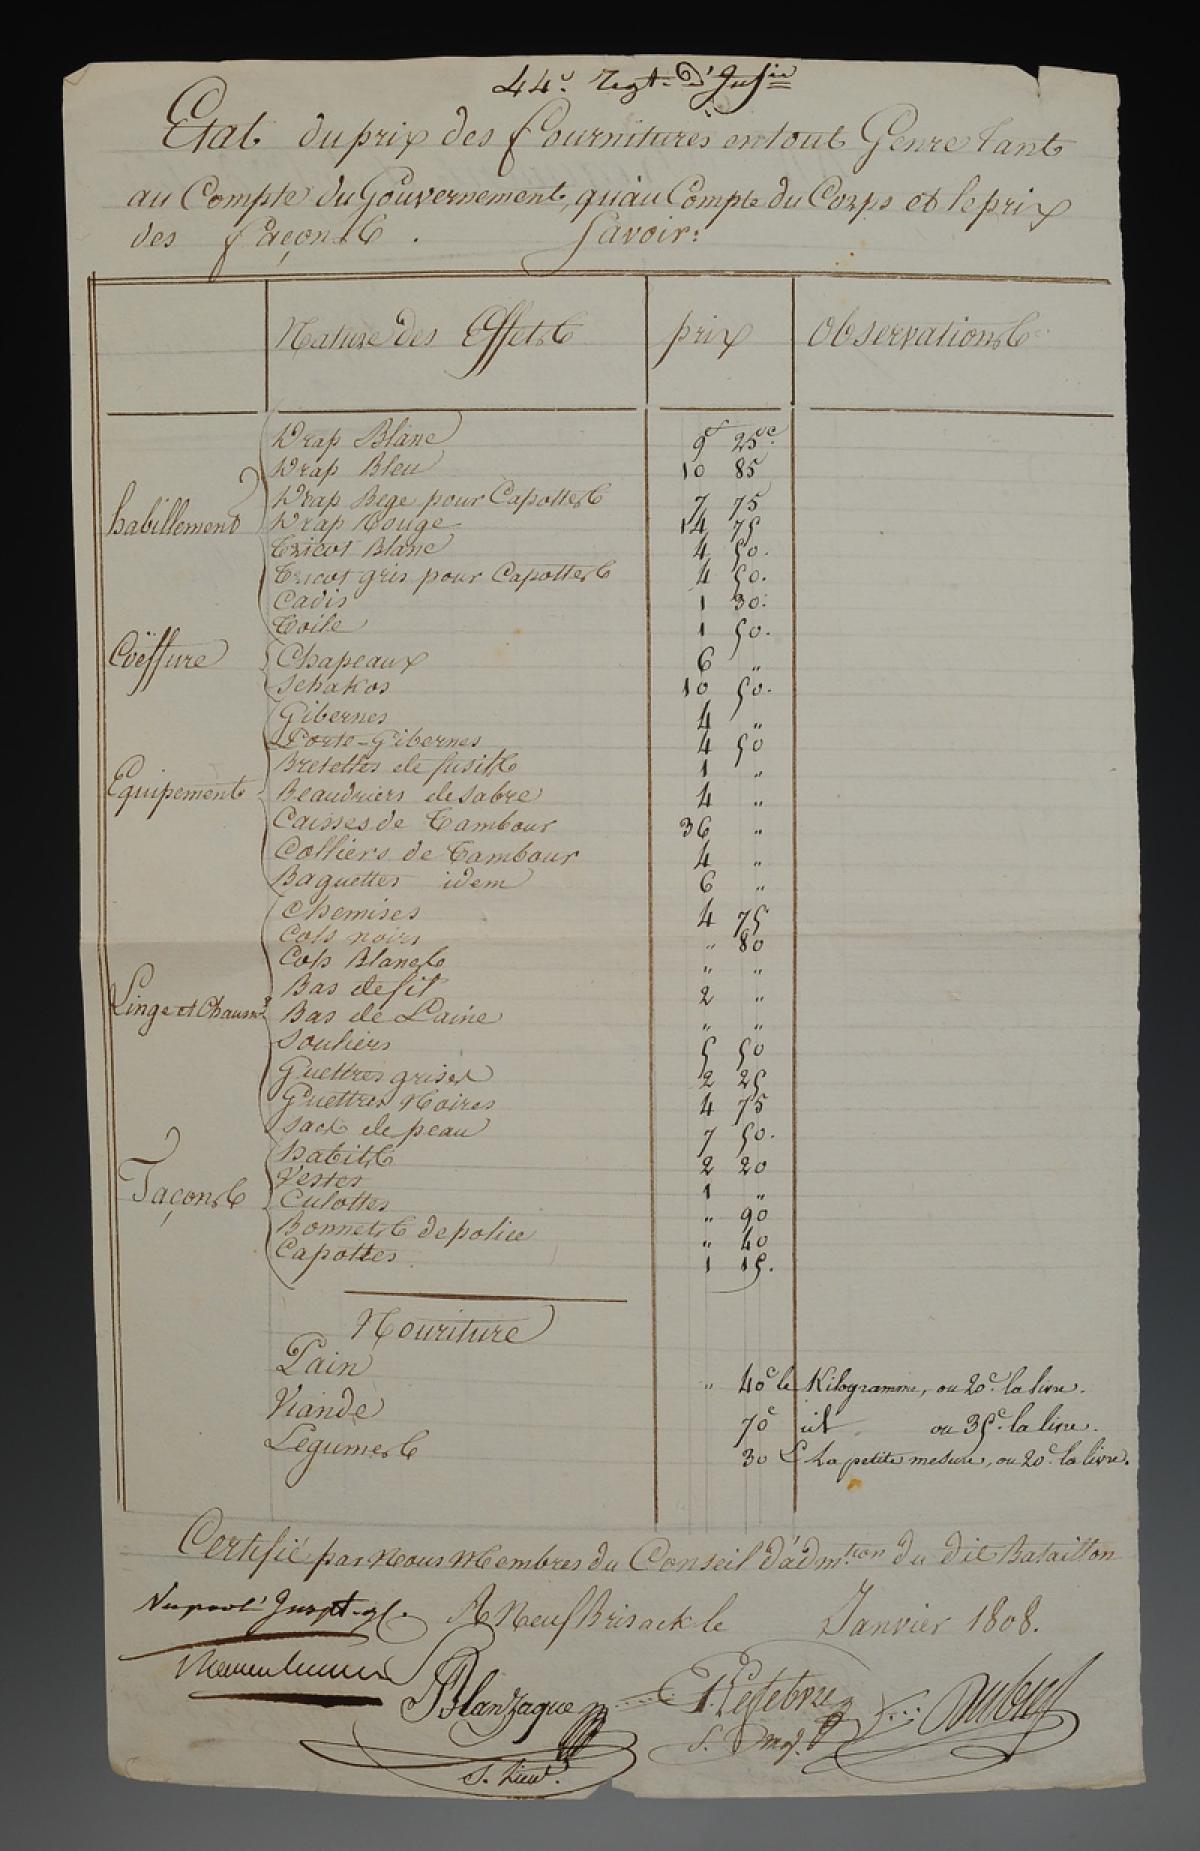 44e. Regt. d'Infie
Etat du prix des fournitures en tout Genre tant
au Compte du Gouvernement, qu'au Compte du Corps et le prix
des façons. Savoir:
Nature des Effets prix Observations
habillement
Drap Blanc 9f 25c.
Drap Bleu 10 85
Drap Bege pour Capottes 7 75
Drap Rouge 14 75
Tricot Blanc 4 50.
Tricot gris pour Capottes 4 50.
Cadis 1 30.
Toile 1 50.
Coëffure
Chapeaux 6 "
Schakos 10 50.
Equipement
Gibernes 4 "
Porte-Gibernes 4 50
Bretelles de fusils 1 "
Beaudriers de sabre 4 "
Caisses de Tambour 36 "
Colliers de Tambour 4 "
Baguettes idem 6 "
Linge et Chaussre
Chemises 4 75
Cols noirs " 80
Cols Blancs " "
Bas de fil 2 "
Bas de Laine " "
Souliers 5 50
Guettres grises 2 25
Guettres Noires 4 75
Sacs de peau 7 50.
Façons
habits 2 20
Vestes 1 "
Culottes " 90
Bonnets de police " 40
Capottes 1 15.
Nouriture
Pain " 40c le Kilogramme, ou 20c. la livre.
Viande 70c id ou 35c. la livre.
Legumes 30 c La petite mesure, ou 20c. la livre.
Certifié par Nous Membres du Conseil d'admtion du dit Bataillon
A Neuf Brisack le Janvier 1808.
Blanzague
S. Lieut.
Lefebvre
S. Mor.
Dubuf